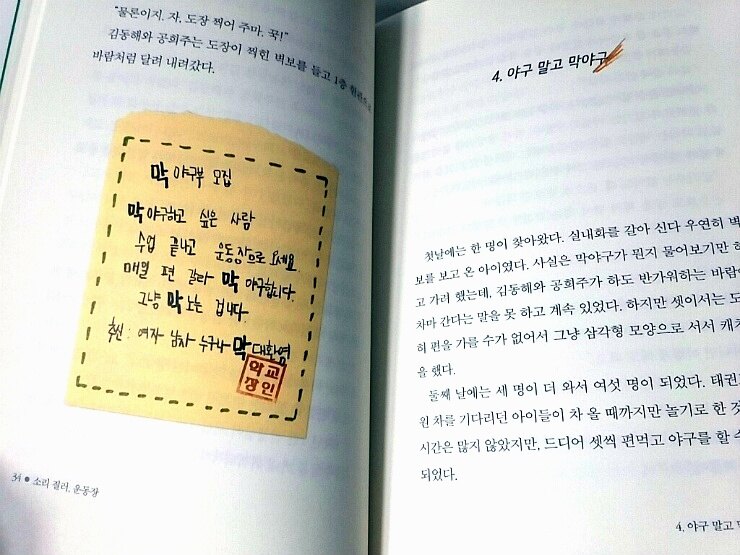 "물론이지. 자, 도장 찍어 주마. 꾹!"
김동해와 공희주는 도장이 찍힌 벽보를 들고 1층 현관으로
바람처럼 달려 내려갔다.
막야구부 모집
막야구하고 싶은 사람
수업 끝나고 운동장으로 오세요.
매일 편 갈라 막야구합니다.
그냥 막 노는 겁니다.
추신 : 여자 남자 누구나 막 대환영
학교
장인
34 ● 소리 질러, 운동장
4. 야구 말고 막야구
첫날에는 한 명이 찾아왔다. 실내화를 갈아 신다 우연히 벽
보를 보고 온 아이였다. 사실은 막야구가 뭔지 물어보기만 하
고 가려 했는데, 김동해와 공희주가 하도 반가워하는 바람에
차마 간다는 말을 못 하고 계속 있었다. 하지만 셋이서는 도
히 편을 가를 수가 없어서 그냥 삼각형 모양으로 서서 캐치
을 했다.
둘째 날에는 세 명이 더 와서 여섯 명이 되었다. 태권
원 차를 기다리던 아이들이 차 올 때까지만 놀기로 한 것
시간은 많지 않았지만, 드디어 셋씩 편먹고 야구를 할 수
되었다.
4. 야구 말고